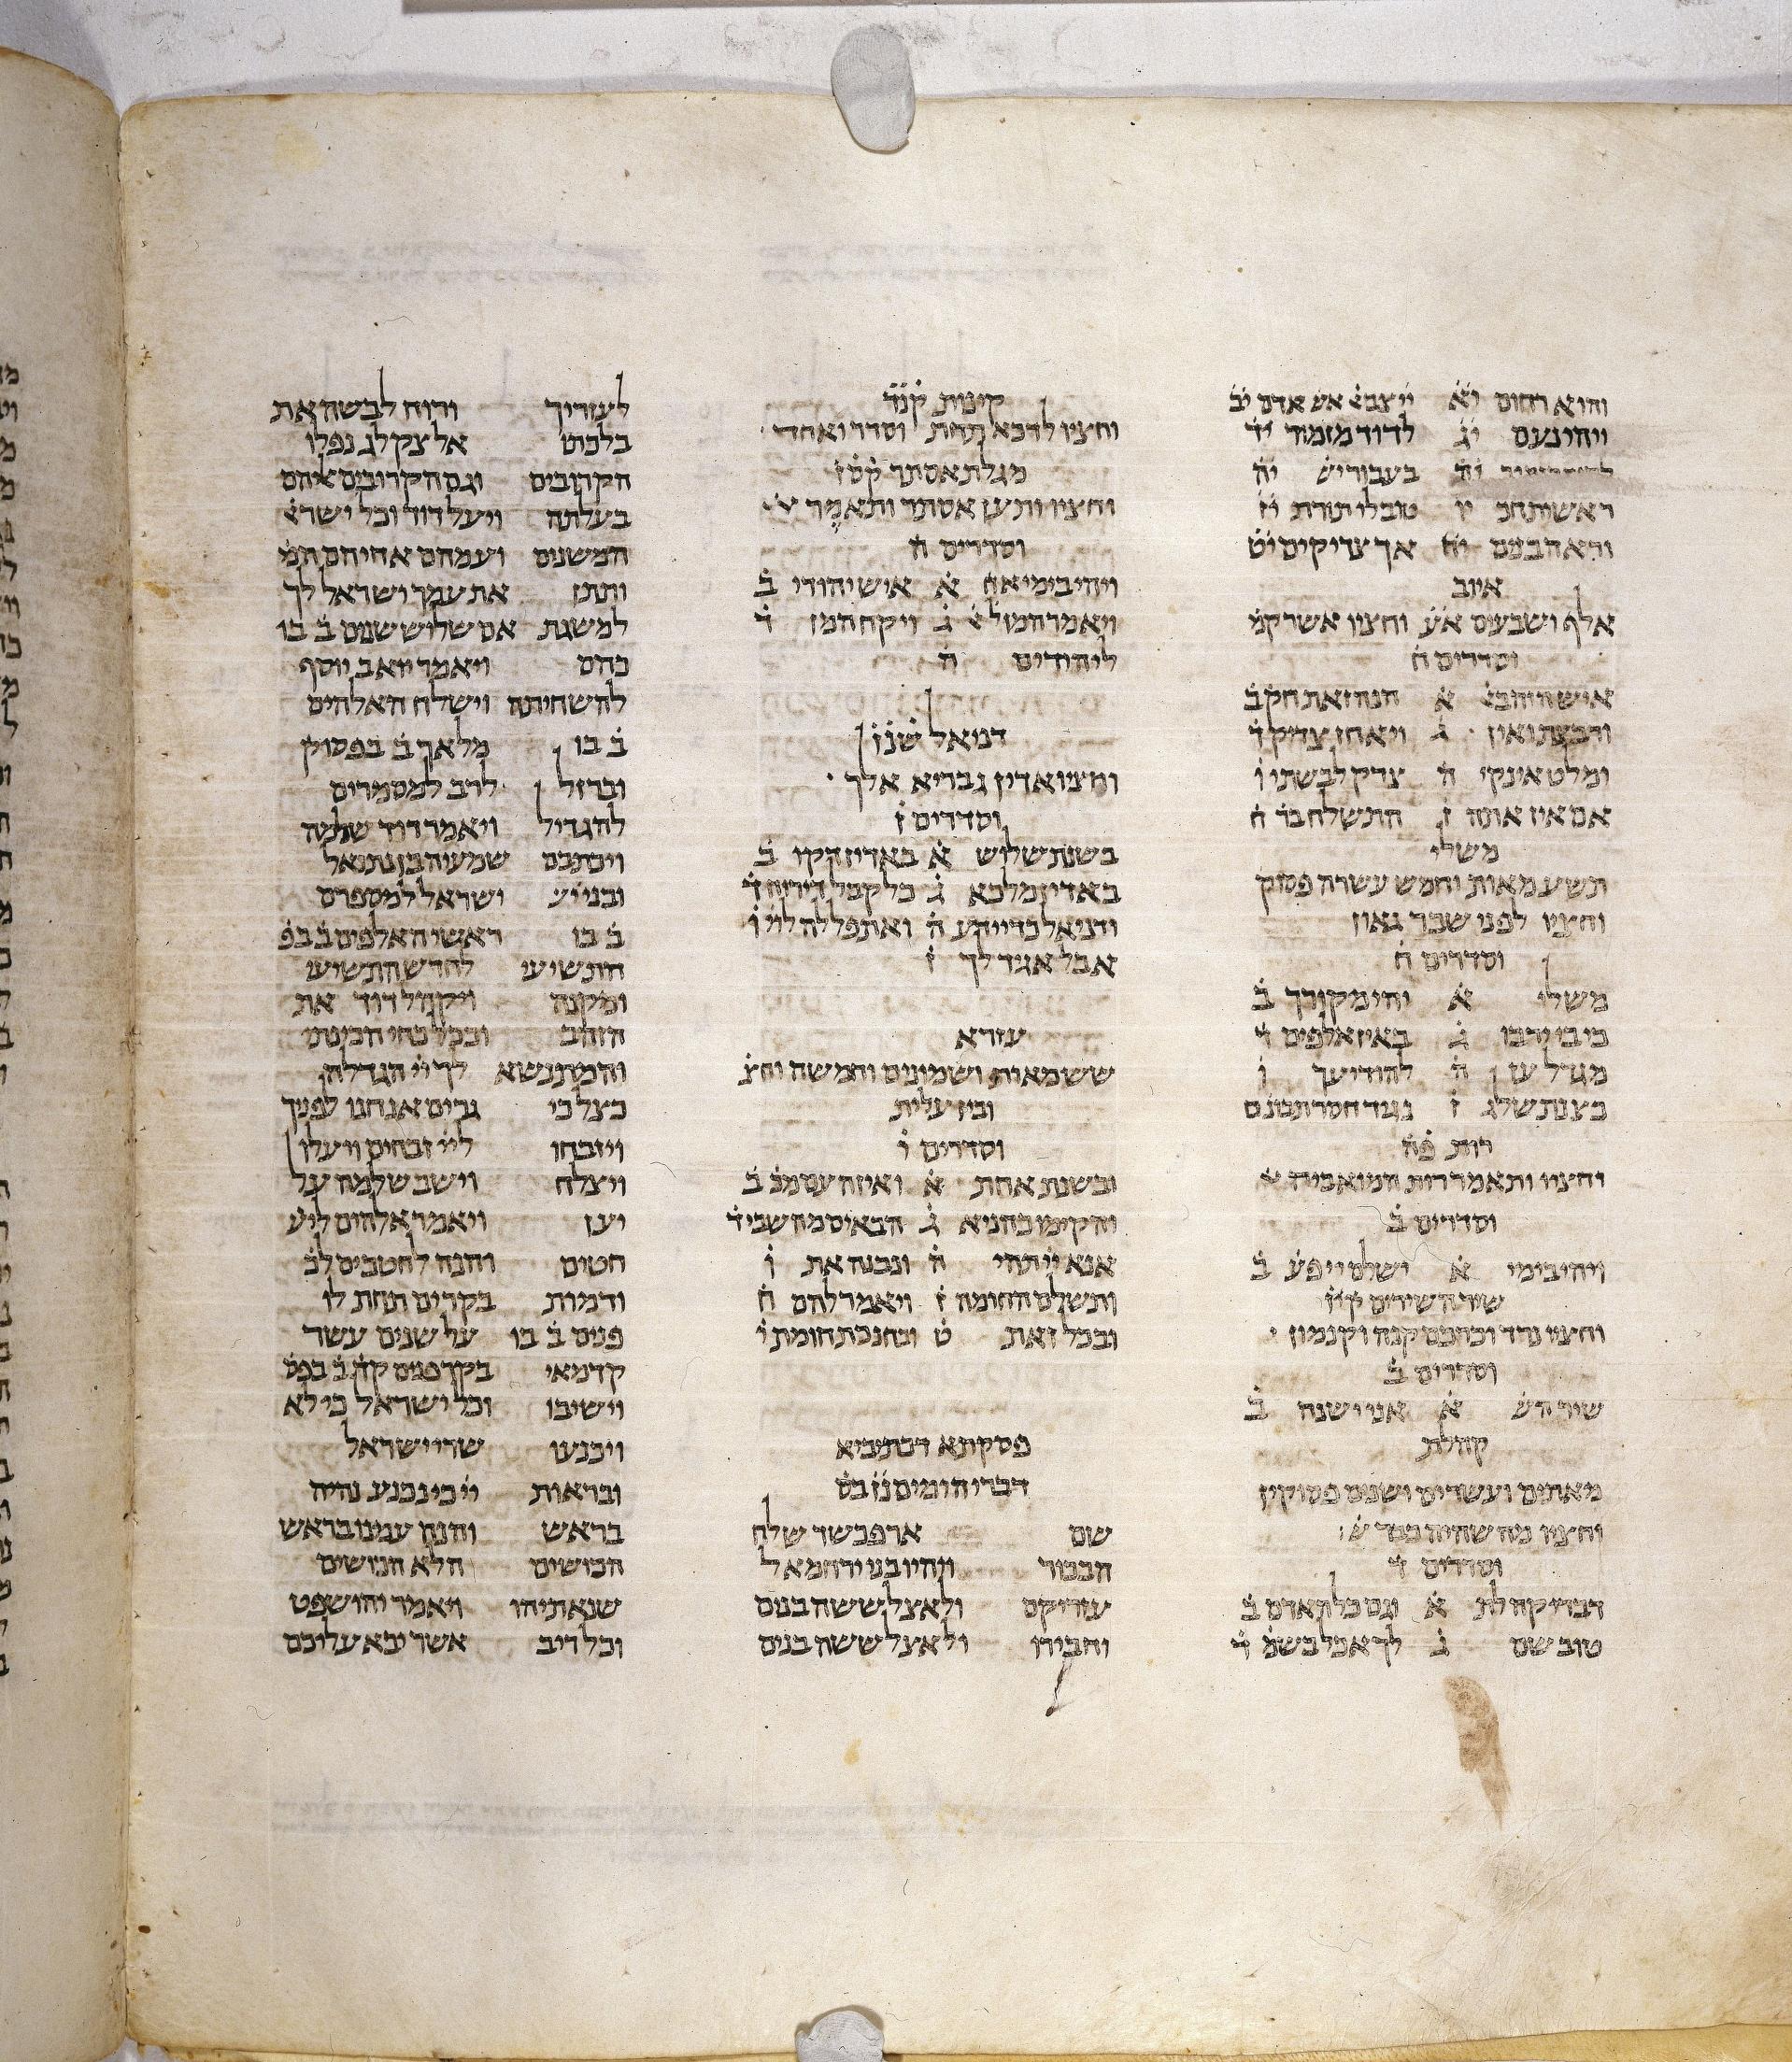 והוא רחום יא ייצבא אש אדם יב
ויהי נעם יג לדוד מזמור יד
יה בעבור יש יה
ראשית חכ יו טוב לי תורת יז
וראה בנים יח אך צדיקים יט
איוב
אלף ושבעים אע וחציו אשר קמ
וסדרים ח
איש היה הנה זאת חק ב
ורבצת ואין ג ויאחז צדיק ד
ימלט אי נקי ה צדק לבשתי ו
אם אין אתה ז התשלח בר ח
משלי
תשע מאות וחמש עשרה פסוק
וחציו לפני שבר גאון
וסדרים ח
משלי א יהי מקורך ב
כי בי ירבו ג באין אלפים ד
מגדל עז ה להודיעך ו
כצנת שלג ז נגיד חסר תבונם
רות פה
וחציו ותאמר רות המואביה
וסדרים ב
ויהי בימי א ישלם יי פע ב
שיר השירים קיז
וחציו נרד וכרכם קנה וקנמון
וסדרים ב
שיר הש א אני ישנה ב
קהלת
מאתים ועשרים ושנים פסוקין
וחציו מה שהיה כבר
וסדרים ד
דברי קהלת א וגם כל האדם ב
טוב שם ג לך אכל בשמ ד
קינות קנד
וחציו לדכא תחת וסדר ואחד
מגלת אסתר קסז
וחציו ותען אסתר ותאמר
וסדרים ה
ויהי בימי אח א איש יהודי ב
ויאמר המל ג ויקח המן ד
ליהודים ה
דניאל שנז
וחציו אדין גבריא אלך
וסדרים ז
בשנת שלוש א באדין הקו ב
באדין מלכא ג כל קבל די רוח ד
ודניאל כדי ידע ה ואתפללה ליי ו
אבל אגיד לך ז
עזרא
שש מאות ושמונים וחמשה וחצ
ובין עלית
וסדרים י
ובשנת אחת א ואיזה עם מכ ב
והקימו כהניא ג הבאים מהשבי ד
אנא יי תהי ה ונבנה את ו
ותשלם החומה ז ויאמר להם ח
ובכל זאת ט ובחנכת חומת י
פסקתא דכתיביא
דברי הימים נז בס
שם ארפכשד שלח
הבכור ויהיו בני ירחמאל
עזריקם ולאצל ששה בנים
וחבירו ולאצל ששה בנים
לעזריך ורוח לבשה את
בלכתו אל צקלג נפלו
הקרובים וגם הקרובים אלהם
בעלתה ויעל דוד וכל ישרא
המשנים ועמהם אחיהם המ
ותתן את עמך ישראל לך
למשגת אם שלוש שנים ב בו
כהם ויאמר יואב יוסף
להשחיתה וישלח האלהים
ב בו מלאך ב בפסוק
וברזל לרב למסמרים
להגדיל ויאמר דויד שלמה
ויכתבם שמעיה בן נתנאל
ובני יש ישראל למספרם
ב בו ראשי האלפים ב בפ
התשיעי לחדש התשיעי
ומקנה ויקהל דויד את
הזהב ובכל כחי הכינתי
והמתנשא לך יי הגדלה
כצל כי גרים אנחנו לפניך
ויזבחו ליי זבחים ויעלו
ויצלח וישב שלמה על
יען ויאמר אלהים לש
חטים והנה לחטבים לכ
ודמות בקרים תחת לו
פנים ב בו על שנים עשר
קדמאי בקר פנים קד ב בפס
וישיבו וכל ישראל כי לא
ויכנעו שרי ישראל
ובראות יי כי נכנע נהיה
בראש והנה עמנו בראש
הכושים הלא הכושים
שנאתיהו ויאמר יהושפט
וכל ריב אשר יבא עליכם